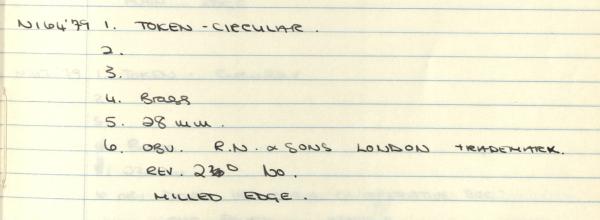 N164'79 1. TOKEN - CIRCULAR.
2.
3.
4. Brass
5. 28 mm.
6. OBV. R.N. & SONS LONDON TRADEMARK.
REV. No.
MILLED EDGE.